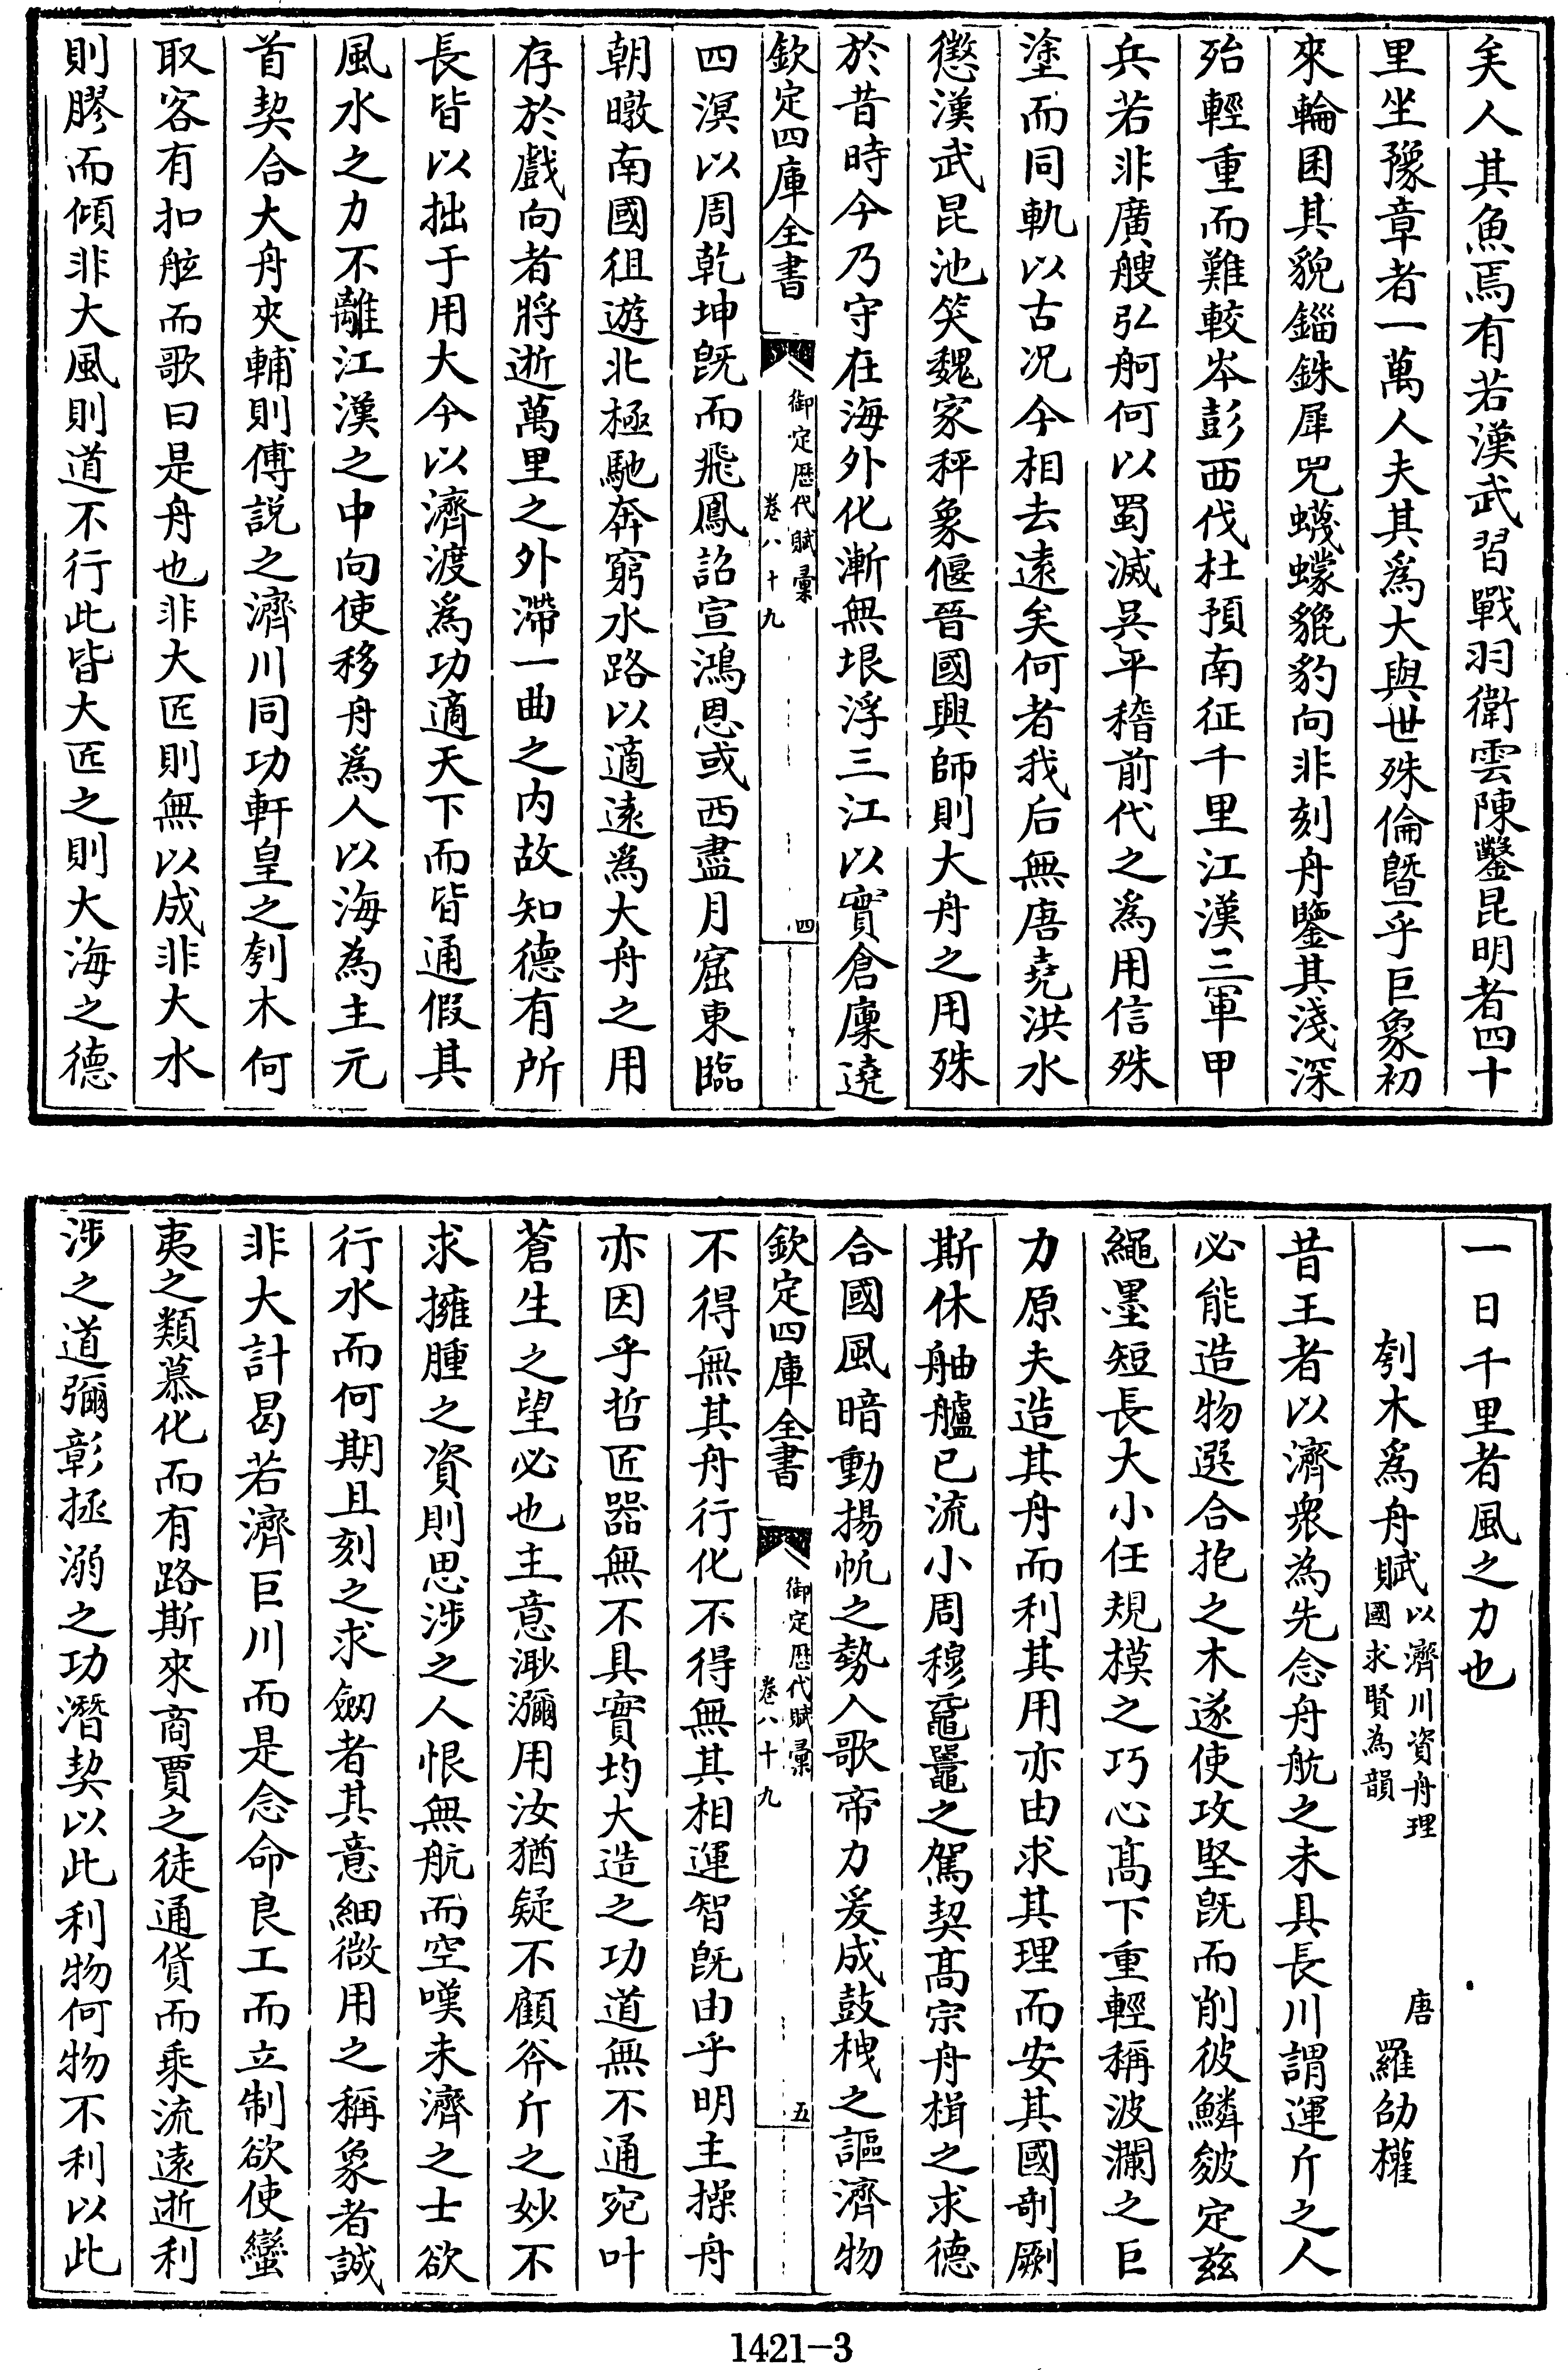 矣人其魚焉有若漢武習戰羽衛雲陳鑿昆明者四十
里坐豫章者一萬人夫其為大與世殊倫暨乎巨象初
來輪囷其貌錙銖犀兕蠛蠓貔豹向非刻舟鑒其淺深
殆輕重而難較岑彭西伐杜預南征千里江漢三軍甲
兵若非廣艘弘舸何以蜀滅吳平稽前代之為用信殊
塗而同軌以古况今相去遠矣何者我后無唐堯洪水
懲漢武昆池笑魏家秤象偃晉國興師則大舟之用殊
於昔時今乃守在海外化漸無垠浮三江以實倉廩遶
欽定四庫全書
御定歷代賦彙
卷八十九
四
四溟以周乾坤旣而飛鳳詔宣鴻恩或西盡月窟東臨
朝暾南國徂遊北極馳奔窮水路以適遠為大舟之用
存於戲向者將逝萬里之外滯一曲之內故知德有所
長皆以拙于用大今以濟渡為功適天下而皆通假其
風水之力不離江漢之中向使移舟為人以海為主元
首契合大舟夾輔則傅說之濟川同功軒皇之刳木何
取客有扣舷而歌曰是舟也非大匠則無以成非大水
則膠而傾非大風則道不行此皆大匠之則大海之德
一日千里者風之力也
刳木為舟賦以濟川資舟理國求賢為韻 唐 羅劭權
昔王者以濟衆為先念舟航之未具長川謂運斤之人
必能造物選合抱之木遂使攻堅旣而削彼鱗皴定兹
繩墨短長大小任規模之巧心髙下重輕稱波瀾之巨
力原夫造其舟而利其用亦由求其理而安其國剞劂
斯休舳艫已流小周穆黿鼉之駕契髙宗舟楫之求德
合國風暗動揚帆之勢人歌帝力爰成鼓枻之謳濟物
欽定四庫全書
御定歷代賦彙
卷八十九
五
不得無其舟行化不得無其相運智旣由乎明主操舟
亦因乎哲匠器無不具實均大造之功道無不通宛叶
蒼生之望必也主意渺瀰用汝猶疑不顧斧斤之妙不
求擁腫之資則思涉之人恨無航而空嘆未濟之士欲
行水而何期且刻之求劒者其意細微用之稱象者誠
非大計曷若濟巨川而是念命良工而立制欲使蠻
夷之類慕化而有路斯來商賈之徒通貨而乘流遠逝利
涉之道彌彰拯溺之功潛契以此利物何物不利以此
1421-3